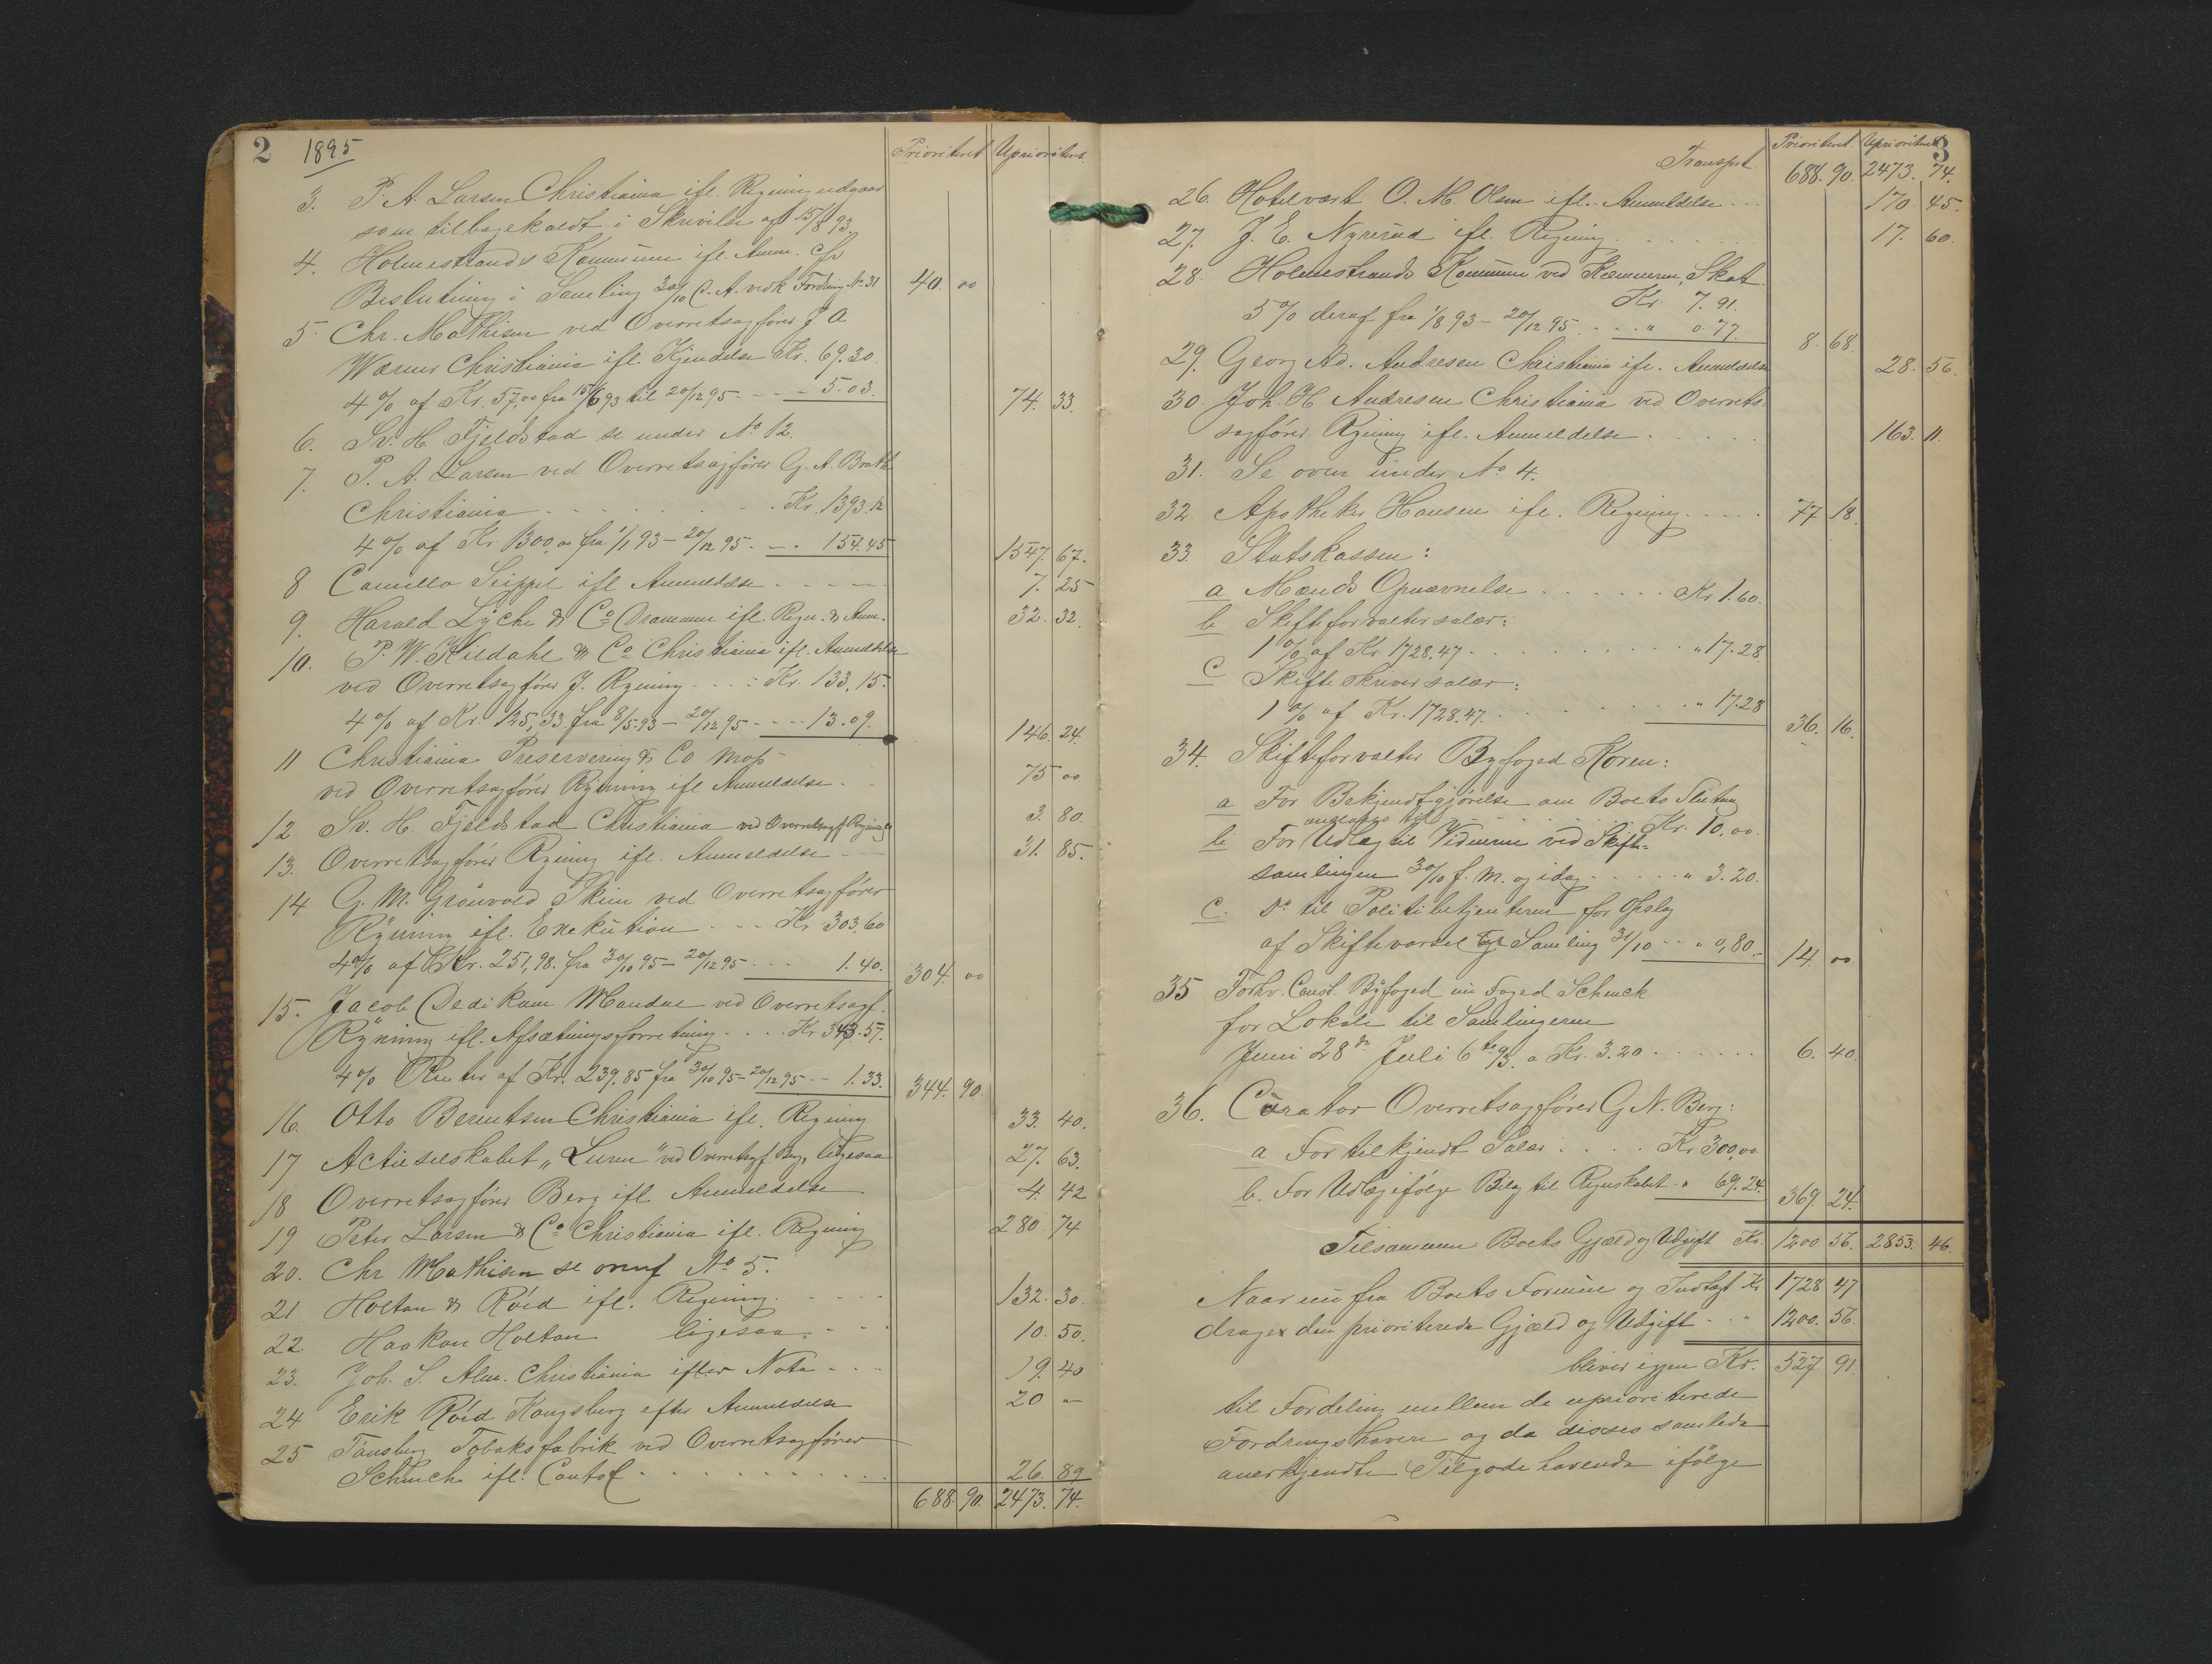 2 1895
Prioriteret Uprioriteret
3. P. A. Larsen Christiania ifl. Regning udgaar
som tilbagekaldt i Skrivelse af 15/8 93.
4. Holmestrands Kommune ifl. Anm. cfr
Beslutning i Samling 30/10 d. A. vedk Fordring No 31 40. 00
5. Chr. Mathisen ved Overretsagfører J. A
Wærner Christiania ifl. Kjendelse Kr. 69.30
4 % af Kr. 57,00 fra 15/6 93 til 20/12 95 - - - 5.03. 74. 33.
6. Sv. H. Fjeldstad se under No 12.
7. P. A. Larsen ved Overretsagfører G. A. Brath
Christiania . . . . . Kr. 1393.12
4 % af Kr. 1300,00 fra 1/1 93 - 20/12 95. - . 154.45 1547. 67.
8 Camilla Seippel ifl Anmeldelse . - - - 7. 25
9. Harald Lyche & Co Drammen ifl. Regn. & Anm. 32. 32.
10. P. W. Hildahl & Co Christiania ifl. Anmeldelse
ved Overretsagfører J. Ryning - - - : Kr. 133,15.
4 % af Kr. 125,33 fra 8/5 93 - 20/12 95 - - - - 13.09. 146. 24.
11 Christiania Preserving & Co Moss
ved Overretsagfører Ryning ifl Anmeldelse - 75 00
12 Sv. H. Fjeldstad Christiania ved Overretssagf Ryning 3. 80.
13. Overretsagfører Ryning ifl. Anmeldelse - - 31. 85.
14 G. M. Grönvold Skien ved Overretsagfører
Ryning ifl. Exekution - - - Kr 303,60
4 % af Kr. 251,98. fra 30/10 95 - 20/12 95 - - - 1.40. 304. 00
15. Jacob Dedikam Mandal ved Overretsagf.
Ryning ifl. Afsætningsforretning . . . . Kr 343.57.
4 % Renter af Kr. 239.85 fra 30/10 95 - 20/12 95 - - 1.33. 344. 90.
16. Otto Berentsen Christiania ifl. Regning 33. 40.
17 Actieselskabet „Luren" ved Overretsagf Berg, ligesaa 27. 63.
18 Overretsagfører Berg ifl Anmeldelse 4. 42
19 Peter Larsen & Co Christiania ifl. Regning 280. 74
20. Chr Mathisen se ovenf No 5.
21 Holtan & Röed ifl. Regning. - - - - 132. 30
22 Haakon Holtan ligesaa. - - - 10. 50.
23. Joh. S. Alm. Christiania efter Nota - - - 19. 40
24 Erik Röed Kongsberg efter Anmeldelse 20 "
25 Tönsberg Tobaksfabrik ved Overretsagfører
Schenck ifl. Conto . . . . . . . . 26. 89
688. 90. 2473. 74.
3
Prioriteret. Uprioriteret
Transport 688. 90. 2473. 74.
26. Hotelvært O. M. Olsen ifl. Anmeldelse . . . 170. 45.
27. J. E. Nyrerud ifl. Regning . . . . . . 17. 60.
28. Holmestrands Kommune ved Kæmneren, Skat.
Kr. 7.91.
5 % deraf fra 1/8 93 - 20/12 95. - - . . " 0.77. 8. 68.
29. Georg Ad. Andresen Christiania ifl. Anmeldelse 28. 56.
30 Joh. H Andresen Christiania ved Overrets-
sagfører Ryning ifl. Anmeldelse . . . . . 163. 11.
31. Se oven under No 4.
32. Apotheker Hansen ifl. Regning . . . . 77 18.
33. Statskassen:
a Mænds Opnævnelse . . . . . . Kr 1.60.
b Skifteforvaltersalær:
1 % af Kr. 1728.47. . . . . . . . . . " 17.28
c Skifteskriversalær:
1 % af Kr. 1728.47. . . . . . . . . " 17.28 36. 16.
34. Skifteforvalter Byfoged Koren:
a For Bekjendtgjørelse om Boets Slutning
anslaaes til . . . . . . . Kr. 10,00.
b For Udlæg til Vidnerne ved Skifte-
samlingen 30/10 f. M. og idag . . . . . . " 3.20.
c. Do til Politibetjentene for Opslag
af Skiftevarsel til Samling 31/10 - - " 0,80.- 14. 00
35 Forhv. Const. Byfoged nu Foged Schenck
for Lokale til Samlingerne
Juni 28de Juli 6te 93. a Kr. 3.20 . . . . . . 6. 40.
36. Curator Overretsagfører G N. Berg:
a For tilkjendt Salær . . . . Kr 300,00.
b. For Udlæg ifölge Bilag til Regnskabet - " 69.24. 369. 24.
Tilsammen Boets Gjæld og Udgift Kr. 1200 56. 2853. 46.
Naar nu fra Boets Formue og Indtægt Kr 1728 47
drages den prioriterede Gjæld og Udgift - . " 1200. 56.
bliver igjen Kr. 527. 91.
til Fordeling mellem de uprioriterede
Fordringshavere og da disses samlede
anerkjendte Tilgodehavende ifölge